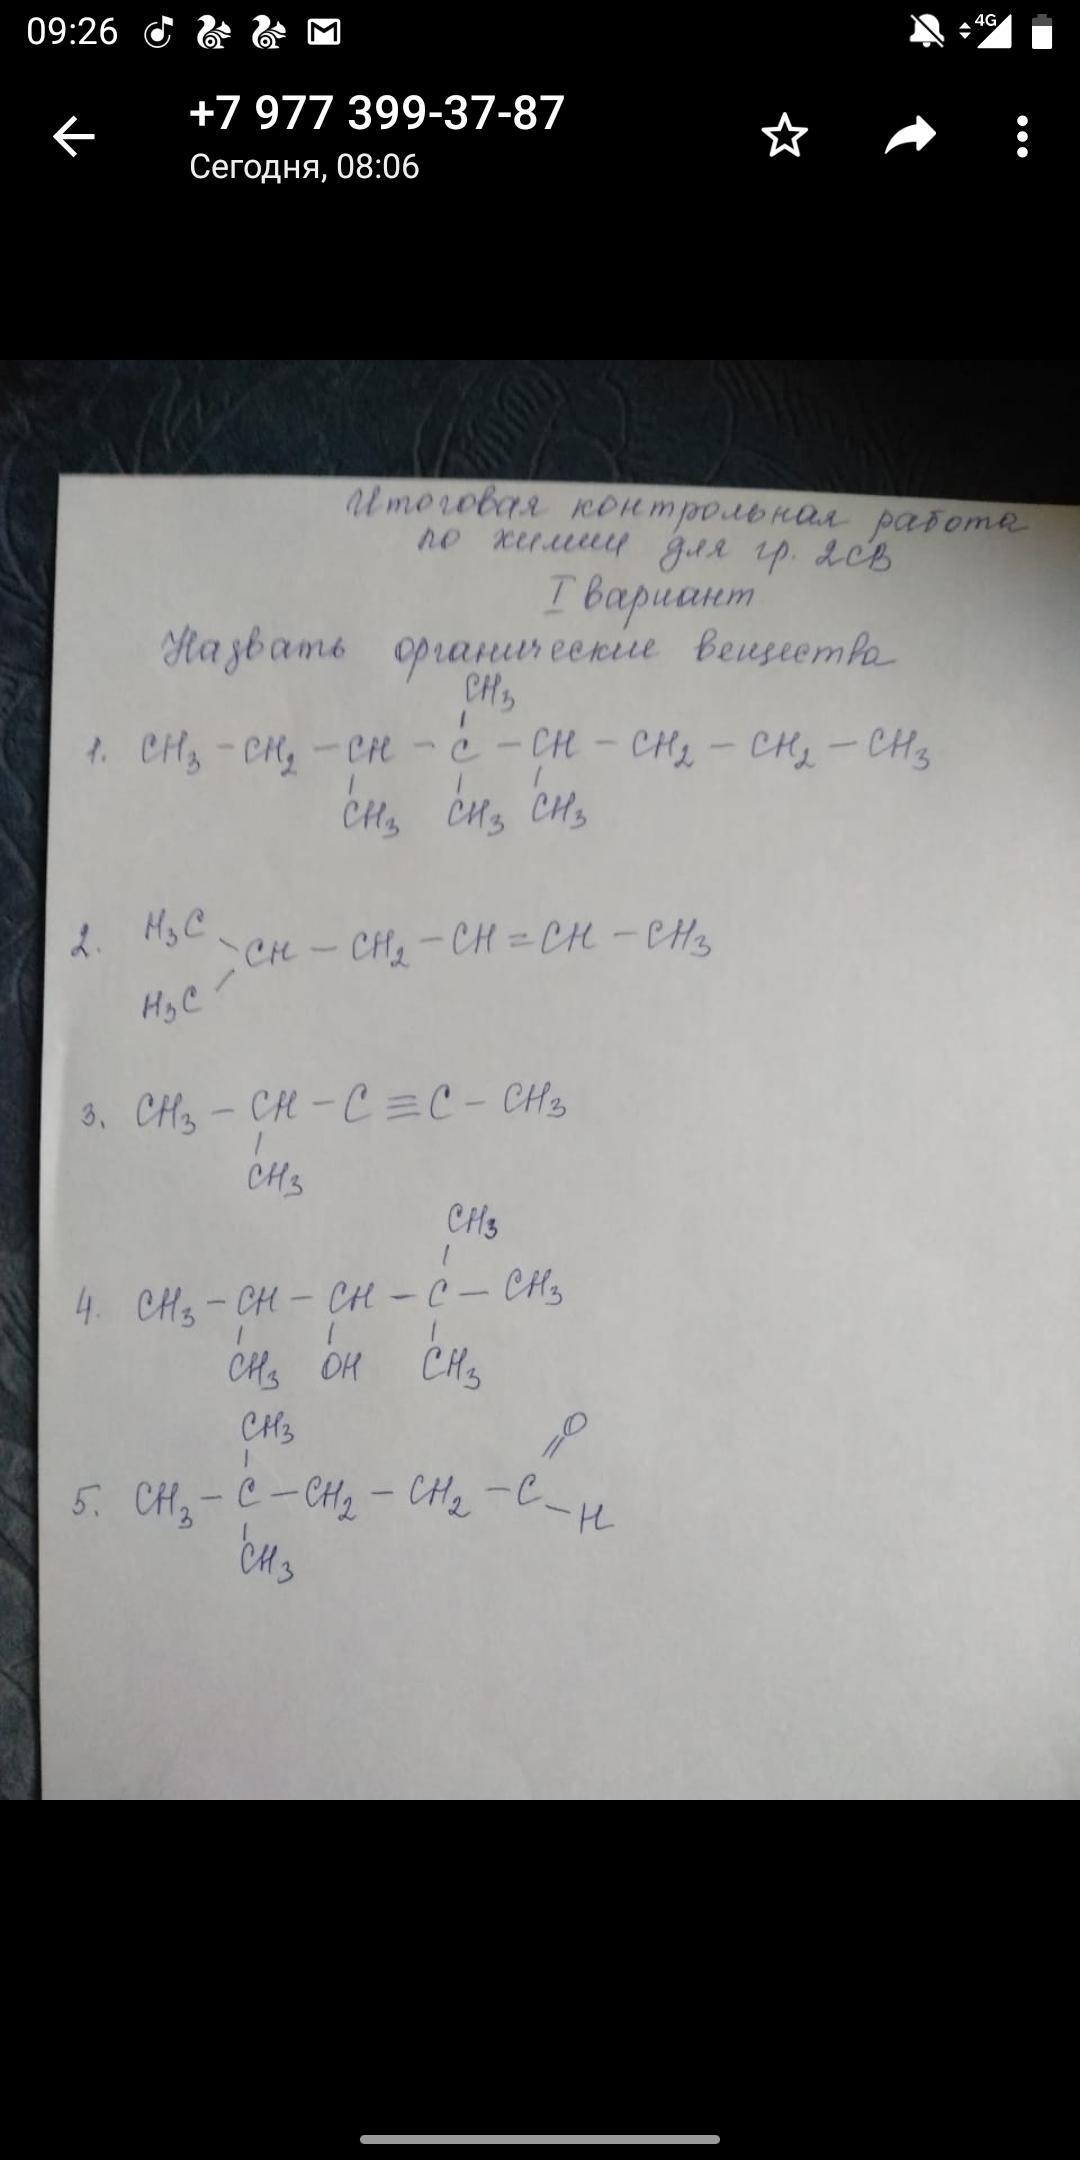 09:26
4G
+7 977 399-37-87
Сегодня, 08:06
Итоговая контрольная работа
по химии для гр. 2СВ
I вариант
Назвать органические вещества
CH₃
1. CH₃ - CH₂ - CH - C - CH - CH₂ - CH₂ - CH₃
CH₃ CH₃ CH₃
2. H₃C
CH - CH₂ - CH = CH - CH₃
H₃C
3. CH₃ - CH - C ≡ C - CH₃
CH₃
CH₃
4. CH₃ - CH - CH - C - CH₃
CH₃ OH CH₃
CH₃ O
5. CH₃ - C - CH₂ - CH₂ - C - H
CH₃